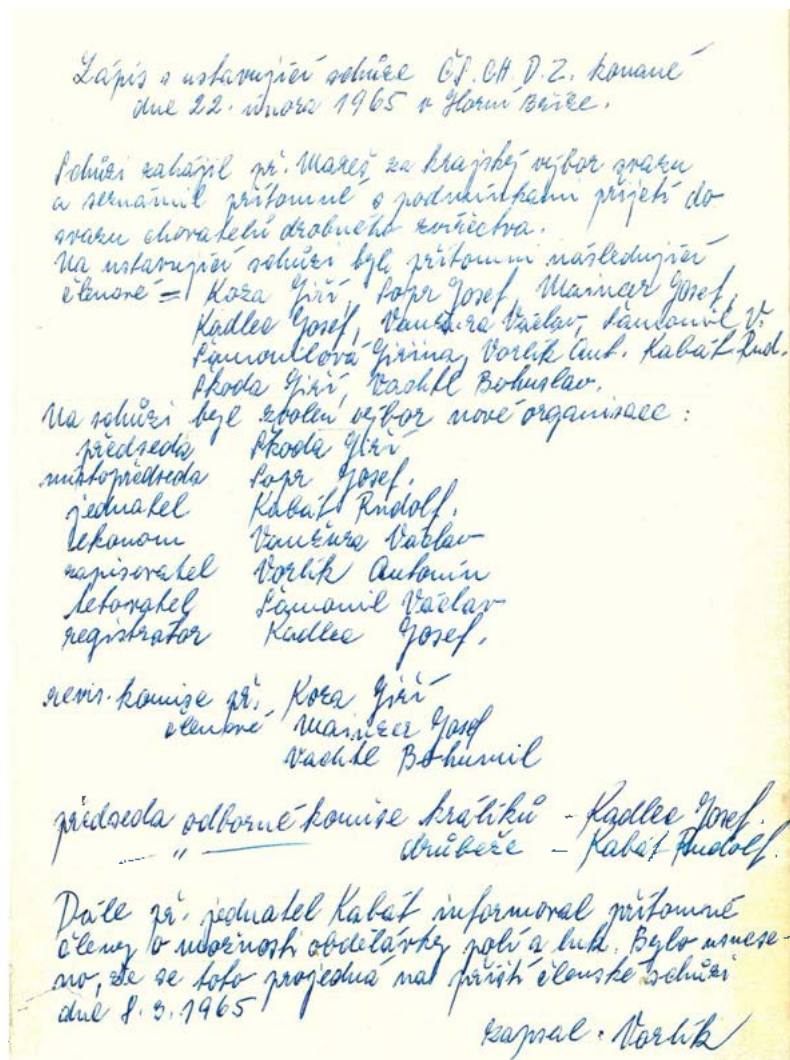 Zápis s ustavující schůze ČS.CH.D.Z. konané
dne 22. února 1965 v Horní Bříze.
Schůzi zahájil př. Mareš za krajský výbor svazu
a seznámil přítomné s podmínkami přijetí do
svazu chovatelů drobného zvířectva.
Na ustavující schůzi byli přítomni následující
členové = Koza Jiří, Sopr Josef, Mainzer Josef,
Kadlec Josef, Vančura Václav, Šamonil V.
Šamonilová Jiřina, Vorlík Ant. Kabát Rud.
Škoda Jiří, Vachtl Bohuslav.
Na schůzi byl zvolen výbor nové organisace :
předseda Škoda Jiří
místopředseda Sopr Josef.
jednatel Kabát Rudolf.
ekonom Vančura Václav
zapisovatel Vorlík Antonín
tetovatel Šamonil Václav
registrátor Kadlec Josef.
revis. komise př. Koza Jiří
členové Mainzer Josef
Vachtl Bohumil
předseda odborné komise králíků - Kadlec Josef.
" drůbeže - Kabát Rudolf.
Dále př. jednatel Kabát informoval přítomné
členy o možnosti obdělávky polí a luk. Bylo usnese-
no, že se toto projedná na příští členské schůzi
dne 8.3.1965
zapsal : Vorlík